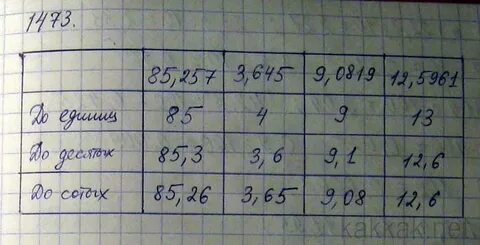 1473.
85,257 3,645 9,0819 12,5961
До единиц 85 4 9 13
До десятых 85,3 3,6 9,1 12,6
До сотых 85,26 3,65 9,08 12,6
kakkak.net